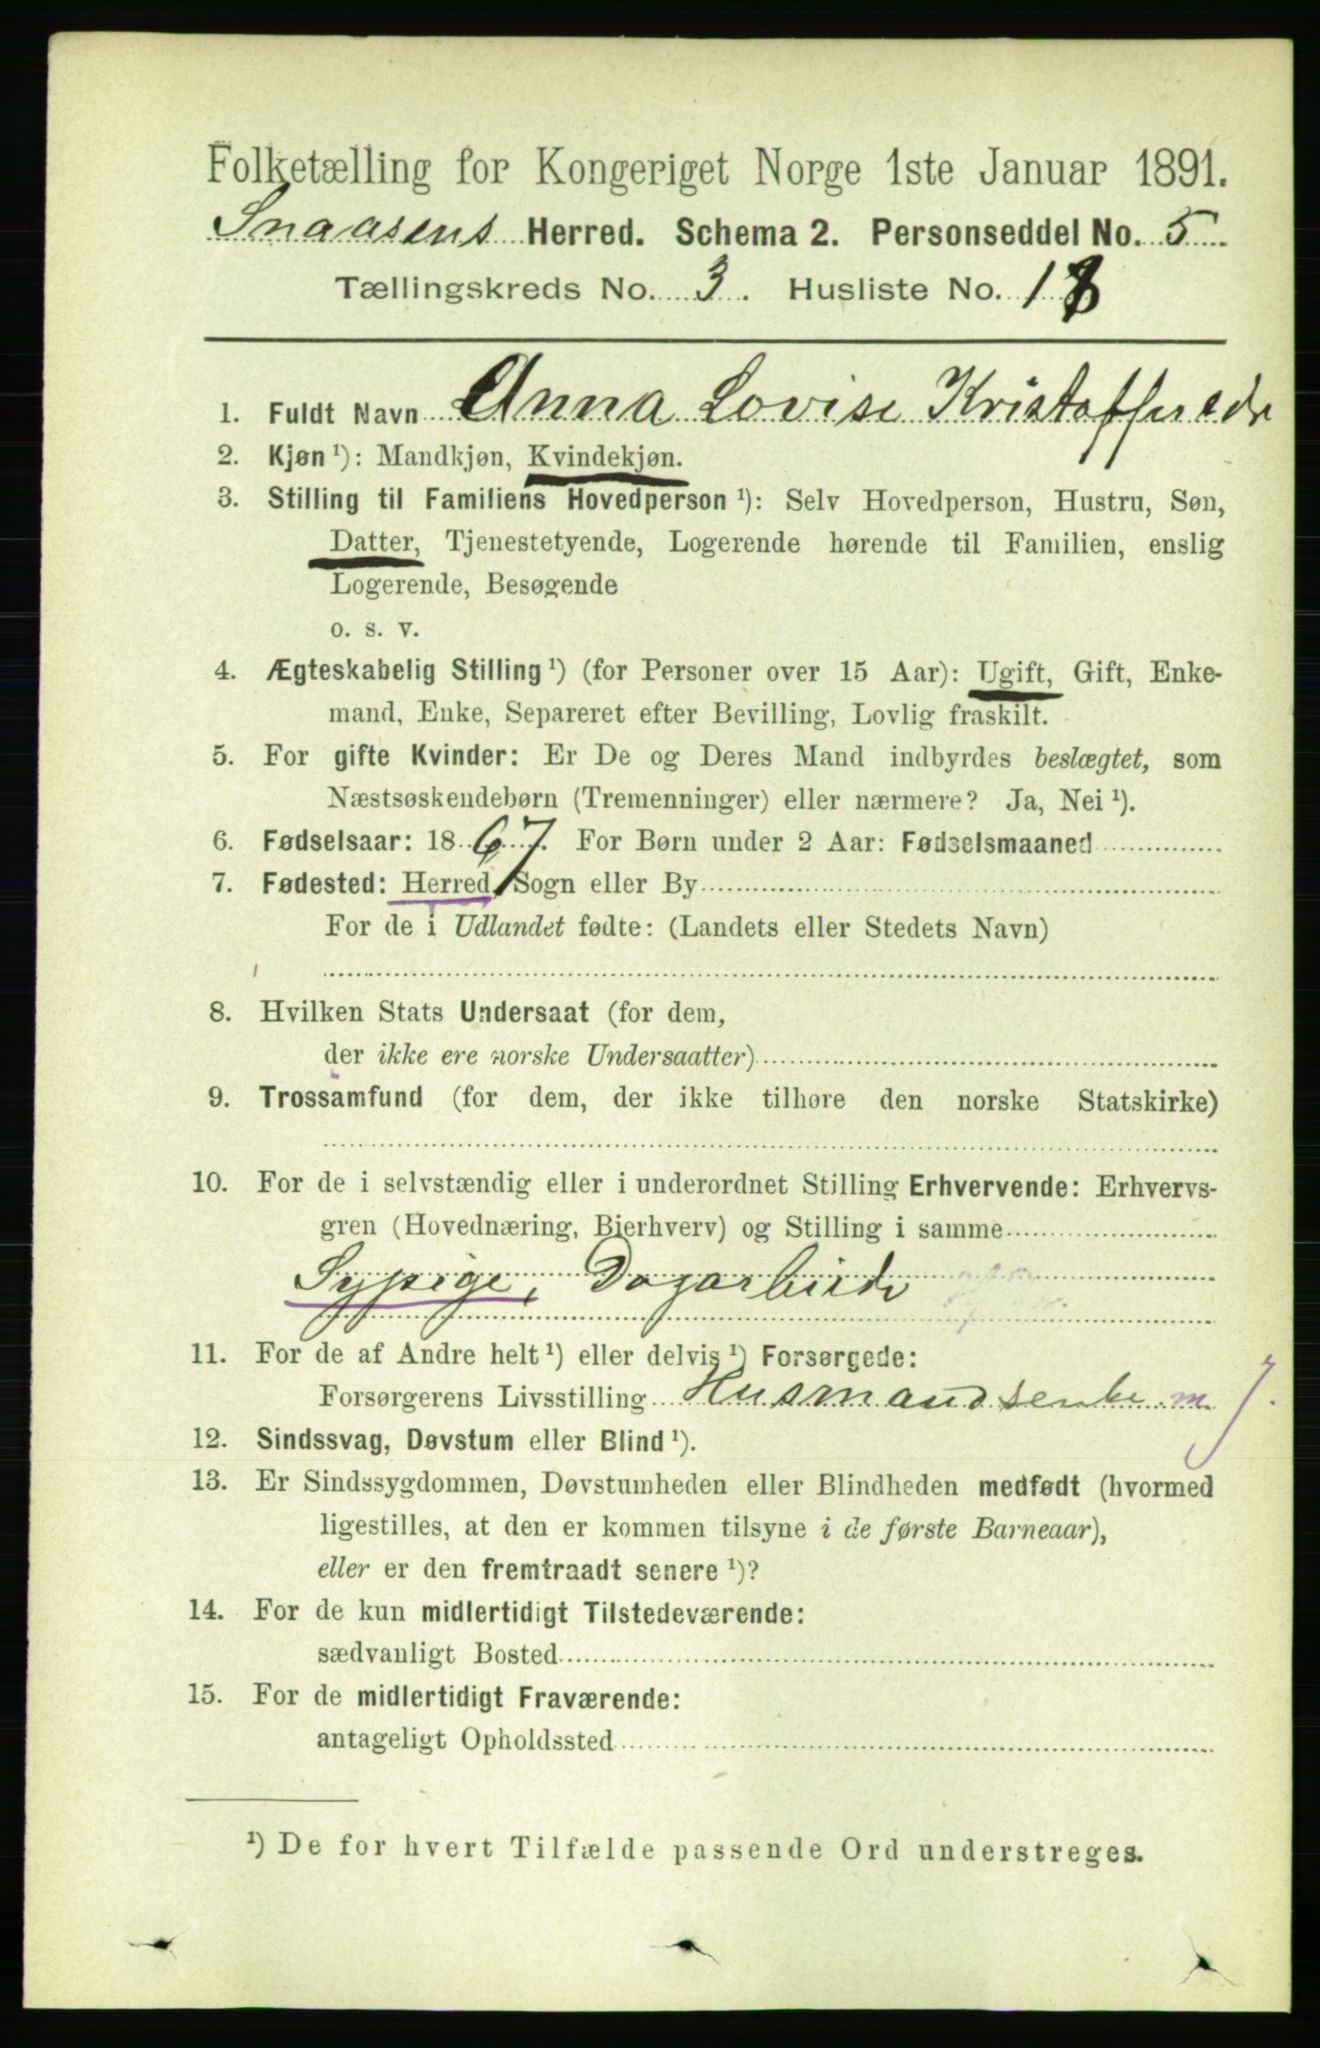 Folketælling for Kongeriget Norge 1ste Januar 1891.
Snaasens Herred. Schema 2. Personseddel No. 5
Tællingskreds No. 3. Husliste No. 18
1. Fuldt Navn Anna Lovise
2. Kjøn ¹): Mandkjøn, Kvindekjøn.
3. Stilling til Familiens Hovedperson ¹): Selv Hovedperson, Hustru, Søn,
Datter, Tjenestetyende, Logerende hørende til Familien, enslig
Logerende, Besøgende
o. s. v.
4. Ægteskabelig Stilling ¹) (for Personer over 15 Aar): Ugift, Gift, Enke-
mand, Enke, Separeret efter Bevilling, Lovlig fraskilt.
5. For gifte Kvinder: Er De og Deres Mand indbyrdes beslægtet, som
Næstsøskendebørn (Tremenninger) eller nærmere? Ja, Nei ¹).
6. Fødselsaar: 1867. For Børn under 2 Aar: Fødselsmaaned
7. Fødested: Herred, Sogn eller By
For de i Udlandet fødte: (Landets eller Stedets Navn)
8. Hvilken Stats Undersaat (for dem,
der ikke ere norske Undersaatter)
9. Trossamfund (for dem, der ikke tilhøre den norske Statskirke)
10. For de i selvstændig eller i underordnet Stilling Erhvervende: Erhvervs-
gren (Hovednæring, Bierhverv) og Stilling i samme
Sypige,
11. For de af Andre helt ¹) eller delvis ¹) Forsørgede:
Forsørgerens Livsstilling Husmandsenke m
12. Sindssvag, Døvstum eller Blind ¹).
13. Er Sindssygdommen, Døvstumheden eller Blindheden medfødt (hvormed
ligestilles, at den er kommen tilsyne i de første Barneaar),
eller er den fremtraadt senere ¹)?
14. For de kun midlertidigt Tilstedeværende:
sædvanligt Bosted
15. For de midlertidigt Fraværende:
antageligt Opholdssted
¹) De for hvert Tilfælde passende Ord understreges.